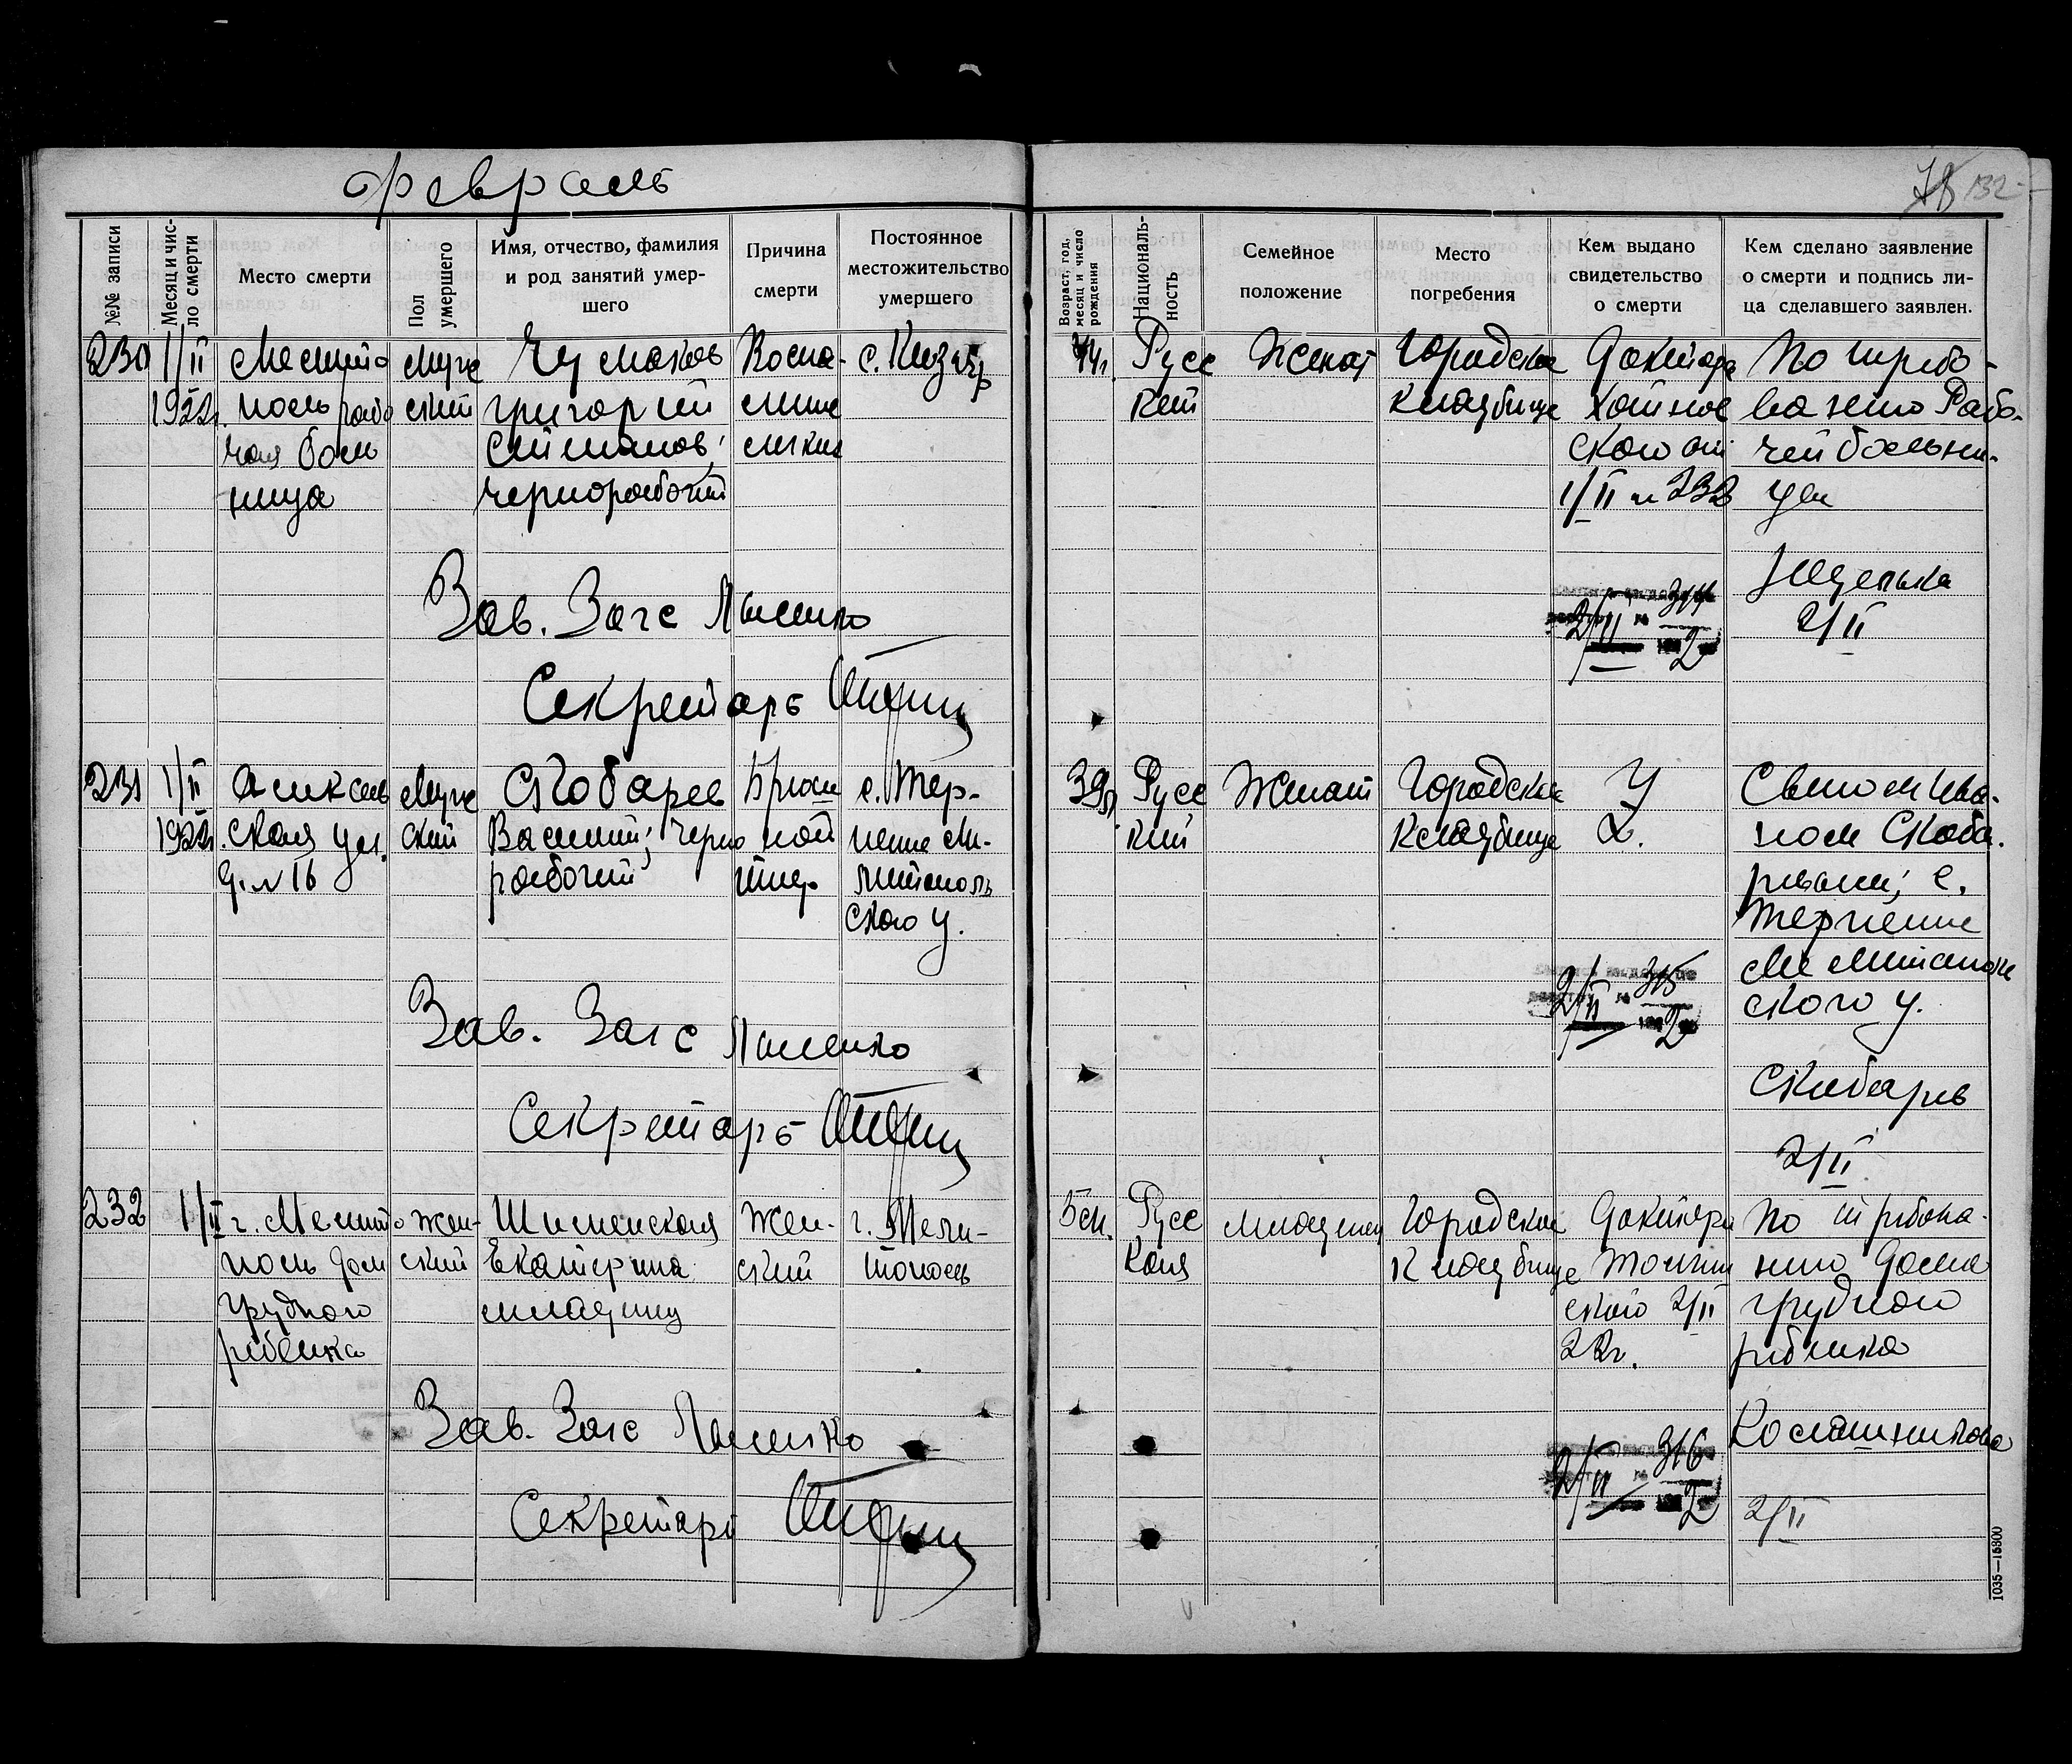 Февраль
132
№№ записи
Месяц и чис-
ло смерти
Место смерти
Пол
умершего
Имя, отчество, фамилия
и род занятий умер-
шего
Причина
смерти
Постоянное
местожительство
умершего
Возраст, год,
месяц и число
рождения
Националь-
ность
Семейное
положение
Место
погребения
Кем выдано
свидетельство
о смерти
Кем сделано заявление
о смерти и подпись ли-
ца сделавшего заявлен.
230
1/II
1922г.
Мелито
поль рабо
чая боль
ница
Муж
ской
Чумаков
Григорий
чернорабочий
Воспа-
ление
легких
с. Кизияр
Русс
кий
Женат
Городское
кладбище
Доктора
ского от
1/II № 232
По требо-
ванию Рабо-
чей больни-
цы
2/II
314
2/II
Зав. Загс
Секретарь
231
1/II
1922г.
Алексеев
ская ул.
д. № 16
Муж
ской
Скобарев
Василий; черно
рабочий
Брюш
ной
тиф
с. Тер-
пение Ме-
литополь
ского у.
39л.
Русс
кий
Женат
Городское
кладбище
У
2.
Сыном Ива-
ном Скоба-
ревым; с.
Терпение
Мелитополь
ского у.
315
2/II
Скобарев
2/II
Зав. Загс
Секретарь
232
1/II
г. Мелито
поль Дом
грудного
ребенка
Жен-
ский
Екатерина
младенец
Жен-
ский
г. Мели-
тополь
5м.
Русс
кая
младенец
Городское
кладбище
Доктора
ского 2/II
22г.
По требова-
нию Дома
грудного
ребенка
316
2/II
2/II
Зав. Загс
Секретарь
1035—15800